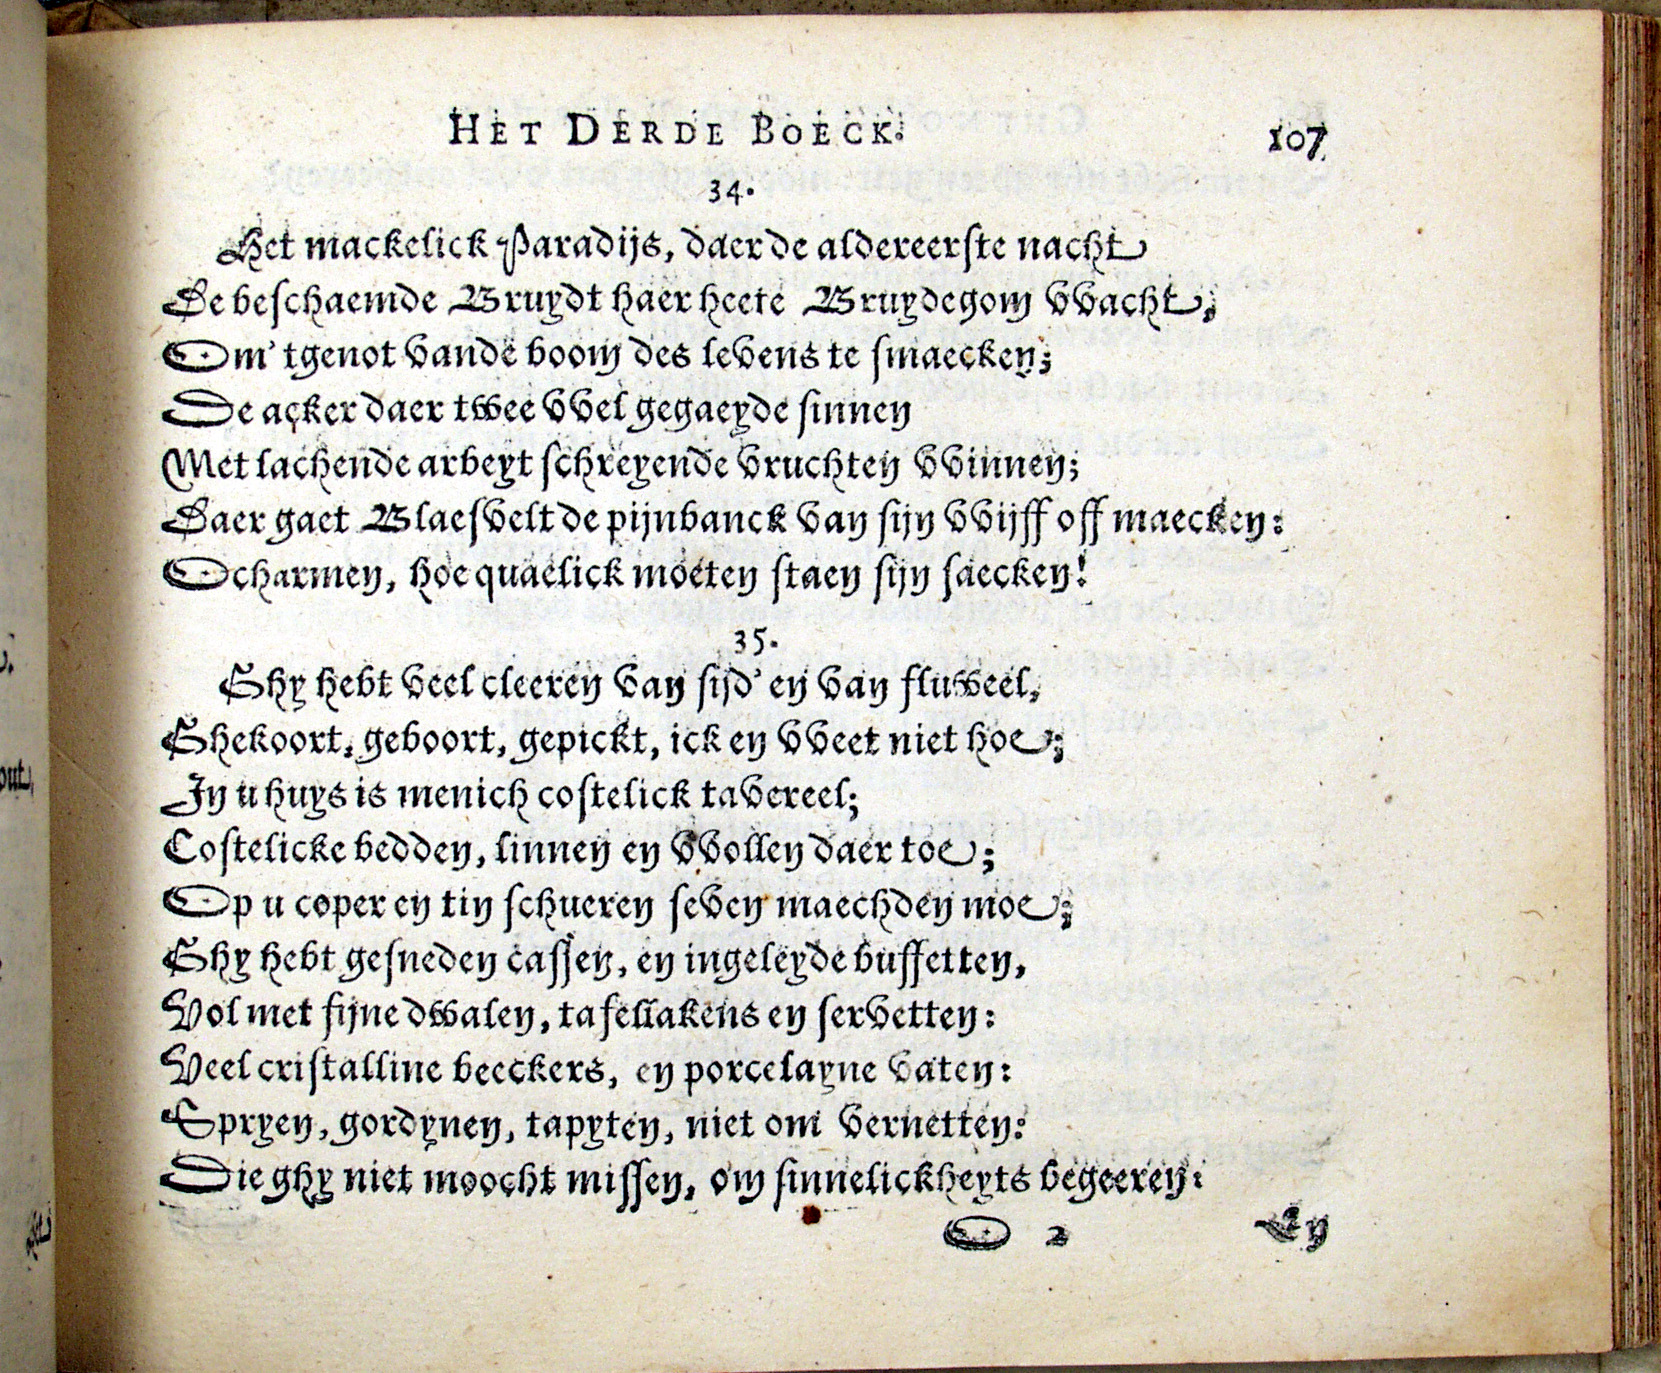 HET DERDE BOECK. 107
34.
Het mackelick Paradijs, daer de aldereerste nacht
De beschaemde Bruydt haer heete Bruydegom vvacht,
Om 't genot vande boom des levens te smaecken;
De acker daer twee vvel gegaeyde sinnen
Met lachende arbeyt schreyende vruchten vvinnen;
Daer gaet Blaesvelt de pijnbanck van sijn vvijff off maecken:
Och armen, hoe quaelick moeten staen sijn saecken!
35.
Ghy hebt veel cleeren van sijd' en van fluweel,
Ghekoort, geboort, gepickt, ick en vveet niet hoe;
In u huys is menich costelick tavereel;
Costelicke bedden, linnen en vvollen daer toe;
Op u coper en tin schueren seven maechden moe;
Ghy hebt gesneden cassen, en ingeleyde buffetten,
Vol met fijne dwalen, tafellakens en servetten:
Veel cristalline beeckers, en porcelayne vaten:
Spryen, gordynen, tapyten, niet om vernetten:
Die ghy niet moocht missen, om sinnelickheyts begeeren:
O 2 En